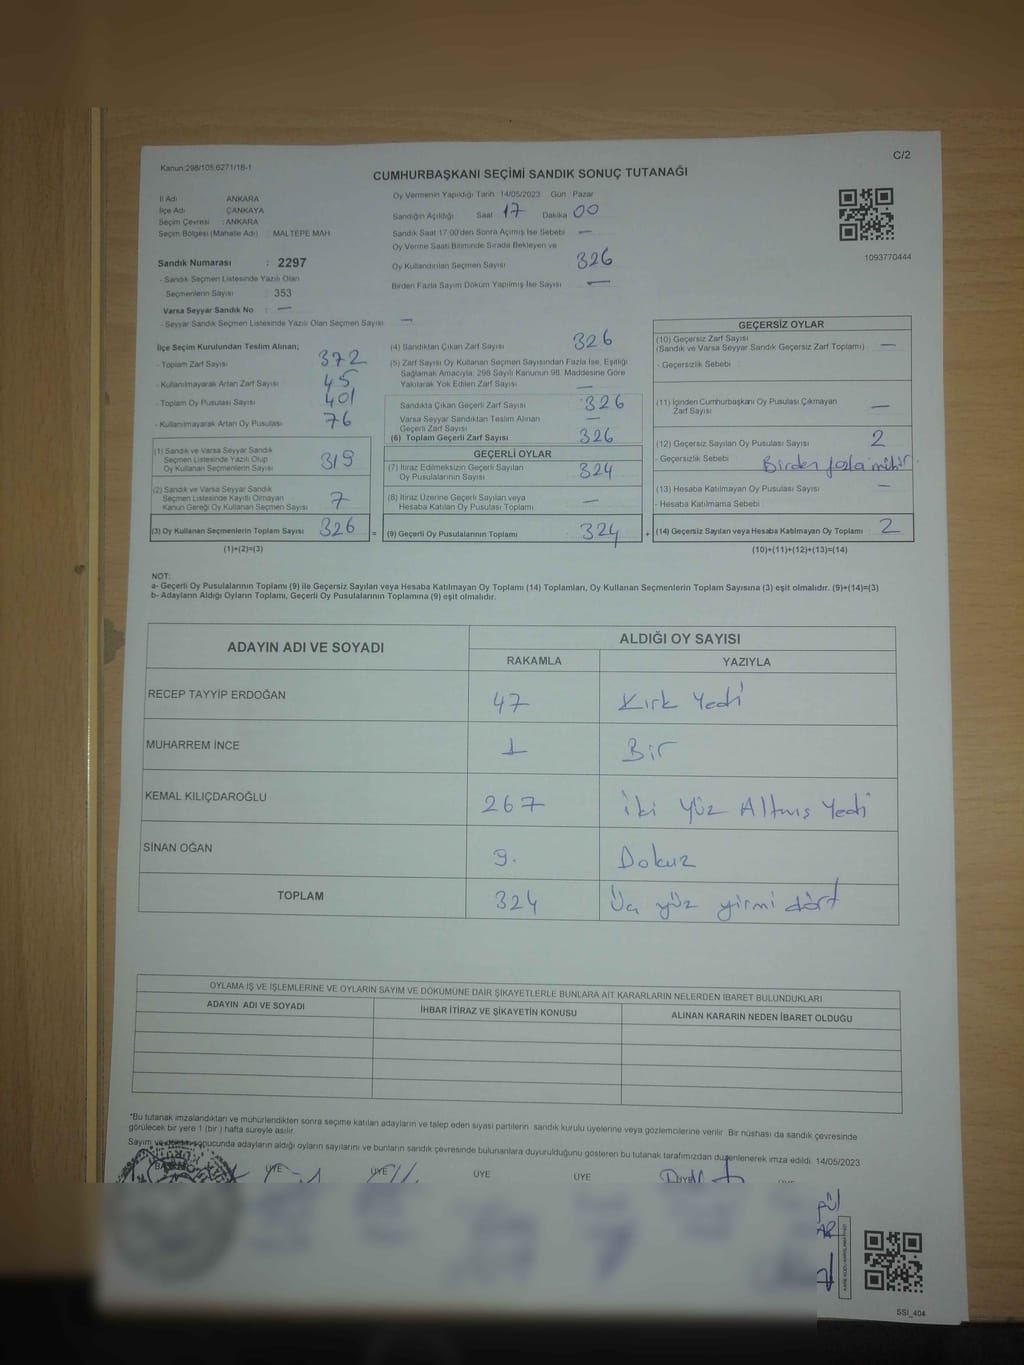 Kanun:298/105,6271/18-1
C/2
CUMHURBAŞKANI SEÇİMİ SANDIK SONUÇ TUTANAĞI
İl Adı ANKARA
İlçe Adı ÇANKAYA
Seçim Çevresi : ANKARA
Seçim Bölgesi (Mahalle Adı) : MALTEPE MAH
Sandık Numarası : 2297
- Sandık Seçmen Listesinde Yazılı Olan
Seçmenlerin Sayısı : 353
Varsa Seyyar Sandık No : —
- Seyyar Sandık Seçmen Listesinde Yazılı Olan Seçmen Sayısı —
Oy Vermenin Yapıldığı Tarih 14/05/2023 Gün Pazar
Sandığın Açıldığı Saat 17 Dakika 00
Sandık Saat 17:00'den Sonra Açılmış İse Sebebi —
Oy Verme Saati Bitiminde Sırada Bekleyen ve
Oy Kullandırılan Seçmen Sayısı 326
Birden Fazla Sayım Döküm Yapılmış İse Sayısı —
1093770444
İlçe Seçim Kurulundan Teslim Alınan;
- Toplam Zarf Sayısı 372
- Kullanılmayarak Artan Zarf Sayısı 45
- Toplam Oy Pusulası Sayısı 401
- Kullanılmayarak Artan Oy Pusulası 76
(1) Sandık ve Varsa Seyyar Sandık
Seçmen Listesinde Yazılı Olup
Oy Kullanan Seçmenlerin Sayısı 319
(2) Sandık ve Varsa Seyyar Sandık
Seçmen Listesinde Kayıtlı Olmayan
Kanun Gereği Oy Kullanan Seçmen Sayısı 7
(3) Oy Kullanan Seçmenlerin Toplam Sayısı 326
(1)+(2)=(3)
(4) Sandıktan Çıkan Zarf Sayısı 326
(5) Zarf Sayısı Oy Kullanan Seçmen Sayısından Fazla İse, Eşitliği
Sağlamak Amacıyla; 298 Sayılı Kanunun 98. Maddesine Göre
Yakılarak Yok Edilen Zarf Sayısı —
Sandıkta Çıkan Geçerli Zarf Sayısı 326
Varsa Seyyar Sandıktan Teslim Alınan
Geçerli Zarf Sayısı —
(6) Toplam Geçerli Zarf Sayısı 326
GEÇERLİ OYLAR
(7) İtiraz Edilmeksizin Geçerli Sayılan
Oy Pusulalarının Sayısı 324
(8) İtiraz Üzerine Geçerli Sayılan veya
Hesaba Katılan Oy Pusulası Toplamı —
= (9) Geçerli Oy Pusulalarının Toplamı : 324
GEÇERSİZ OYLAR
(10) Geçersiz Zarf Sayısı
(Sandık ve Varsa Seyyar Sandık Geçersiz Zarf Toplamı) —
- Geçersizlik Sebebi
(11) İçinden Cumhurbaşkanı Oy Pusulası Çıkmayan
Zarf Sayısı —
(12) Geçersiz Sayılan Oy Pusulası Sayısı 2
- Geçersizlik Sebebi Birden fazla mühür
(13) Hesaba Katılmayan Oy Pusulası Sayısı —
- Hesaba Katılmama Sebebi
+ (14) Geçersiz Sayılan veya Hesaba Katılmayan Oy Toplamı : 2
(10)+(11)+(12)+(13)=(14)
NOT:
a- Geçerli Oy Pusulalarının Toplamı (9) ile Geçersiz Sayılan veya Hesaba Katılmayan Oy Toplamı (14) Toplamları, Oy Kullanan Seçmenlerin Toplam Sayısına (3) eşit olmalıdır. (9)+(14)=(3)
b- Adayların Aldığı Oyların Toplamı, Geçerli Oy Pusulalarının Toplamına (9) eşit olmalıdır.
ADAYIN ADI VE SOYADI ALDIĞI OY SAYISI
RAKAMLA YAZIYLA
RECEP TAYYİP ERDOĞAN 47 Kırk Yedi
MUHARREM İNCE 1 Bir
KEMAL KILIÇDAROĞLU 267 İki Yüz Altmış Yedi
SİNAN OĞAN 9. Dokuz
TOPLAM 324 Üç yüz yirmi dört
OYLAMA İŞ VE İŞLEMLERİNE VE OYLARIN SAYIM VE DÖKÜMÜNE DAİR ŞİKAYETLERLE BUNLARA AİT KARARLARIN NELERDEN İBARET BULUNDUKLARI
ADAYIN ADI VE SOYADI İHBAR İTİRAZ VE ŞİKAYETİN KONUSU ALINAN KARARIN NEDEN İBARET OLDUĞU
*Bu tutanak imzalandıktan ve mühürlendikten sonra seçime katılan adayların ve talep eden siyasi partilerin sandık kurulu üyelerine veya gözlemcilerine verilir. Bir nüshası da sandık çevresinde
görülecek bir yere 1 (bir ) hafta süreyle asılır.
Sayım ve sonucunda adayların aldığı oyların sayılarını ve bunların sandık çevresinde bulunanlara duyurulduğunu gösteren bu tutanak tarafımızdan düzenlenerek imza edildi. 14/05/2023
ÜYE ÜYE ÜYE ÜYE
SSI_404